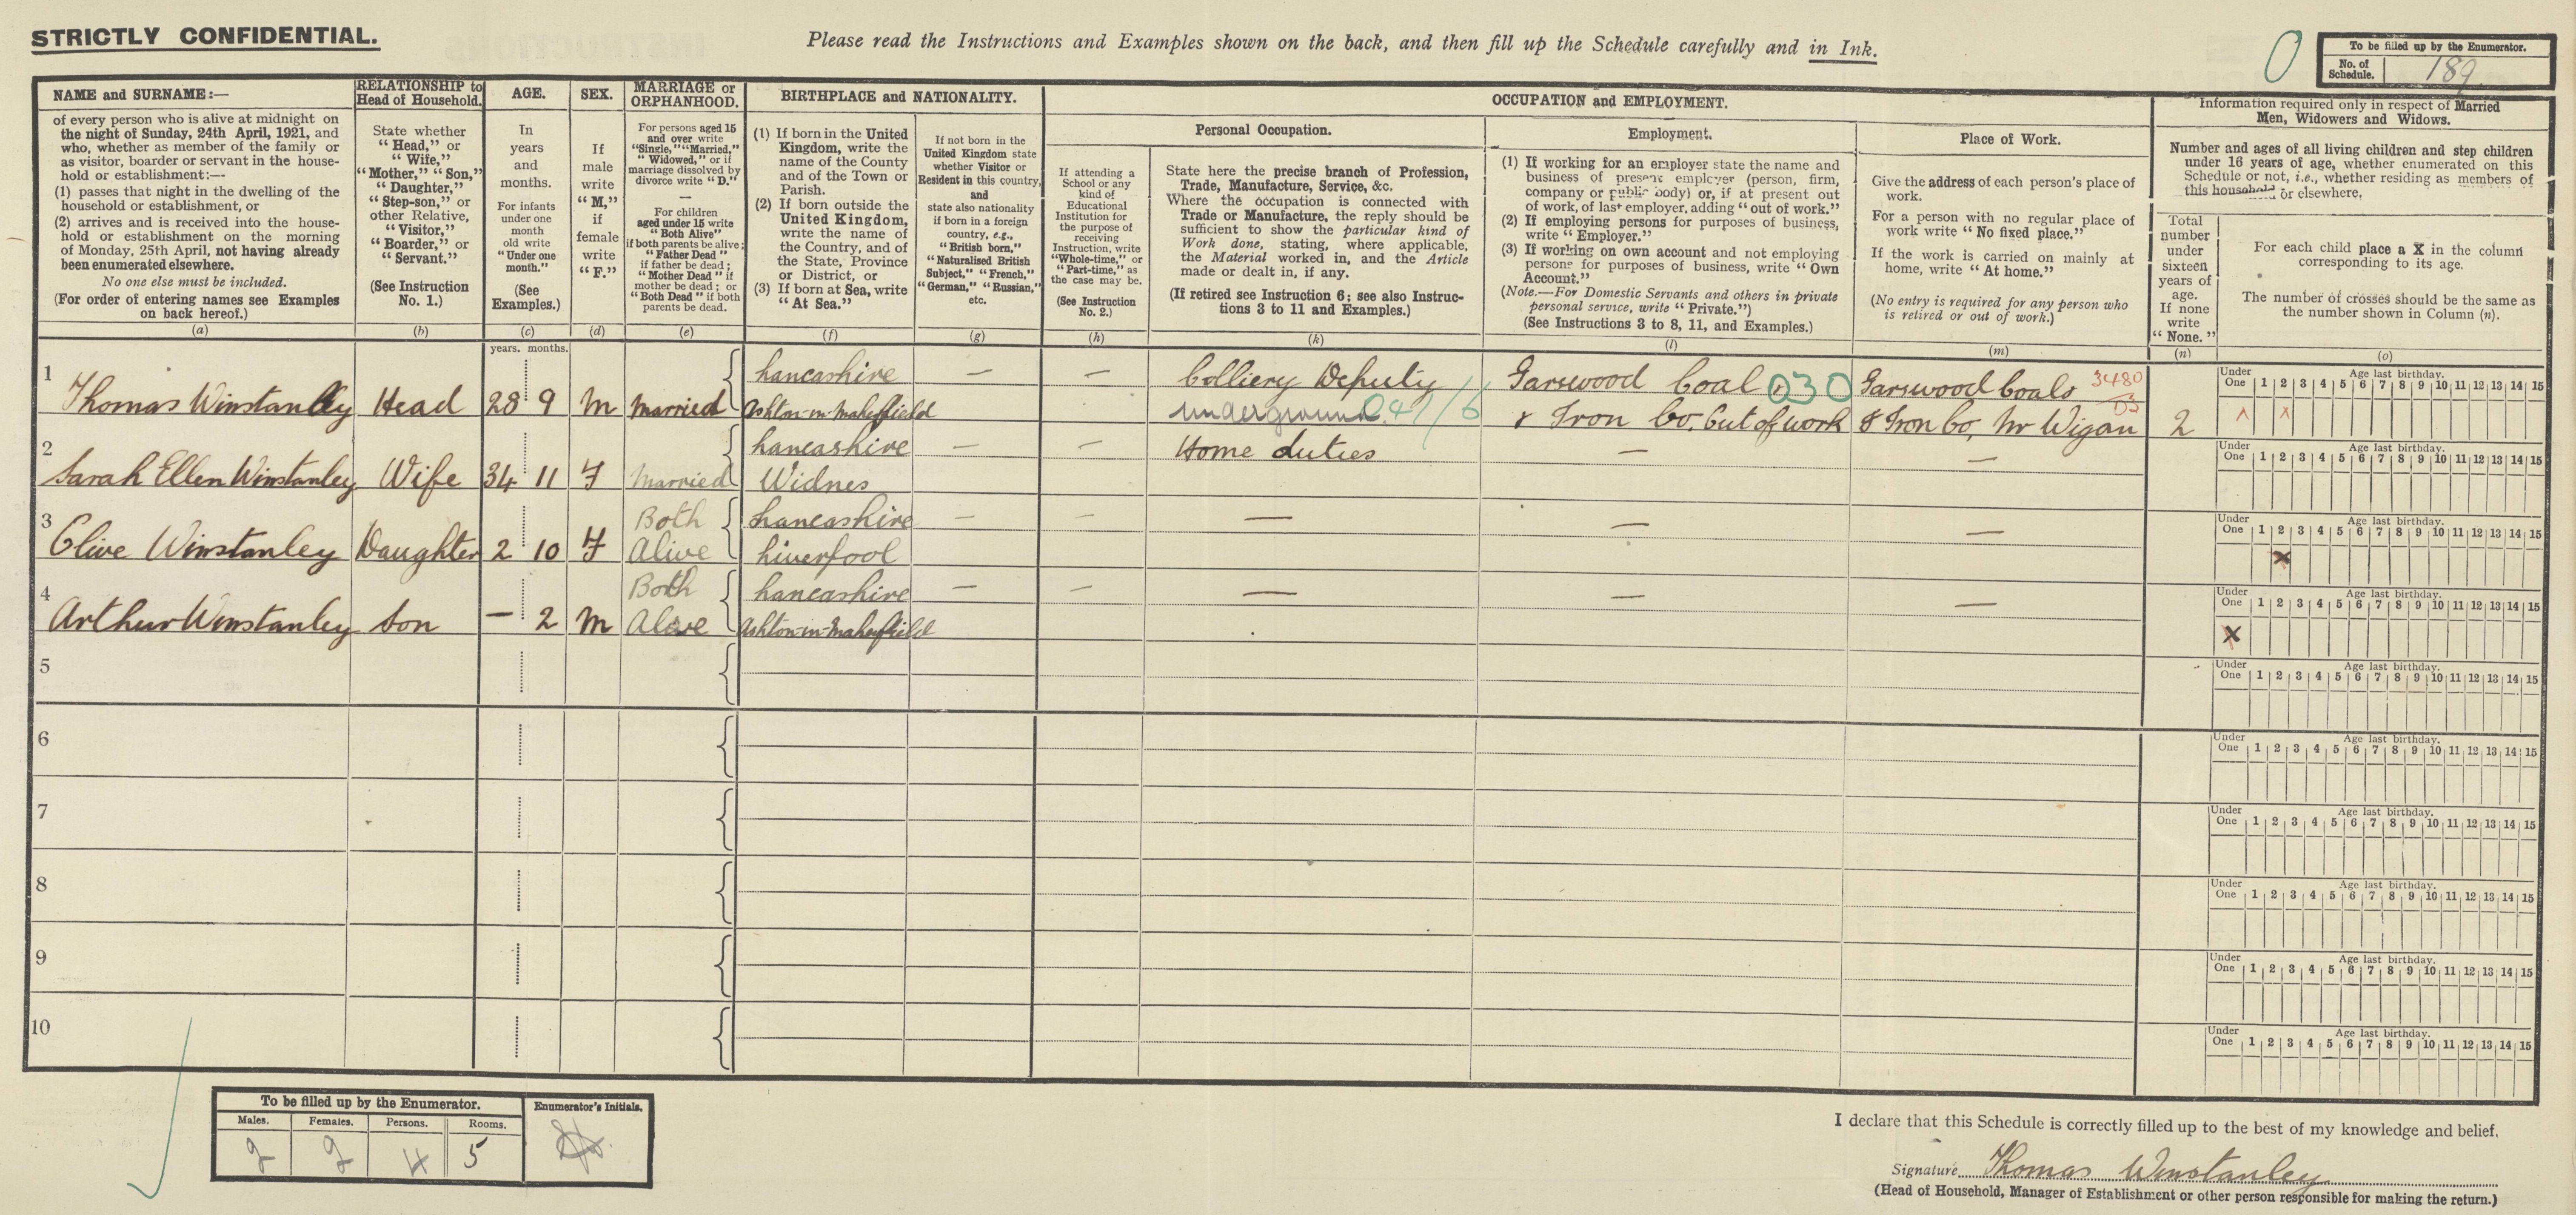 STRICTLY CONFIDENTIAL.
Please read the Instructions and Examples shown on the back, and then fill up the Schedule carefully and in Ink.
0
To be filled up by the Enumerator.
No. of Schedule. 189
NAME and SURNAME:—
of every person who is alive at midnight on
the night of Sunday, 24th April, 1921, and
who, whether as member of the family or
as visitor, boarder or servant in the house-
hold or establishment:—
(1) passes that night in the dwelling of the
household or establishment, or
(2) arrives and is received into the house-
hold or establishment on the morning
of Monday, 25th April, not having already
been enumerated elsewhere.
No one else must be included.
(For order of entering names see Examples
on back hereof.)
(a)
RELATIONSHIP to
Head of Household.
State whether
"Head," or
"Wife,"
"Mother," "Son,"
"Daughter,"
"Step-son," or
other Relative,
"Visitor,"
"Boarder," or
"Servant."
(See Instruction
No. 1.)
(b)
AGE.
In
years
and
months.
For infants
under one
month
old write
"Under one
month."
(See
Examples.)
(c)
SEX.
If
male
write
"M,"
if
female
write
"F."
(d)
MARRIAGE or
ORPHANHOOD.
For persons aged 15
and over write
"Single," "Married,"
"Widowed," or if
marriage dissolved by
divorce write "D."
—
For children
aged under 15 write
"Both Alive"
if both parents be alive;
"Father Dead"
if father be dead;
"Mother Dead" if
mother be dead; or
"Both Dead" if both
parents be dead.
(e)
BIRTHPLACE and NATIONALITY.
(1) If born in the United
Kingdom, write the
name of the County
and of the Town or
Parish.
(2) If born outside the
United Kingdom,
write the name of
the Country, and of
the State, Province
or District, or
(3) If born at Sea, write
"At Sea."
(f)
If not born in the
United Kingdom state
whether Visitor or
Resident in this country,
and
state also nationality
if born in a foreign
country, e.g.,
"British born,"
"Naturalised British
Subject," "French,"
"German," "Russian,"
etc.
(g)
OCCUPATION and EMPLOYMENT.
Personal Occupation.
If attending a
School or any
kind of
Educational
Institution for
the purpose of
receiving
Instruction, write
"Whole-time," or
"Part-time," as
the case may be.
(See Instruction
No. 2.)
(h)
State here the precise branch of Profession,
Trade, Manufacture, Service, &c.
Where the occupation is connected with
Trade or Manufacture, the reply should be
sufficient to show the particular kind of
Work done, stating, where applicable,
the Material worked in, and the Article
made or dealt in, if any.
(If retired see Instruction 6; see also Instruc-
tions 3 to 11 and Examples.)
(k)
Employment.
(1) If working for an employer state the name and
business of present employer (person, firm,
company or public body) or, if at present out
of work, of last employer, adding "out of work."
(2) If employing persons for purposes of business,
write "Employer."
(3) If working on own account and not employing
persons for purposes of business, write "Own
Account."
(Note.—For Domestic Servants and others in private
personal service, write "Private.")
(See Instructions 3 to 8, 11, and Examples.)
(l)
Place of Work.
Give the address of each person's place of
work.
For a person with no regular place of
work write "No fixed place."
If the work is carried on mainly at
home, write "At home."
(No entry is required for any person who
is retired or out of work.)
(m)
Information required only in respect of Married
Men, Widowers and Widows.
Number and ages of all living children and step children
under 16 years of age, whether enumerated on this
Schedule or not, i.e., whether residing as members of
this household or elsewhere.
Total
number
under
sixteen
years of
age.
If none
write
"None."
(n)
For each child place a X in the column
corresponding to its age.
The number of crosses should be the same as
the number shown in Column (n).
(o)
years. months.
1 Thomas Winstanley Head 28 9 M Married Lancashire Ashton-in-Makerfield — — Colliery Deputy underground 047/6 Garswood Coal & Iron Co. Out of work 030 Garswood Coal & Iron Co, Nr Wigan 3480 2
Under One 1 2 3 4 5 6 7 8 9 10 11 12 13 14 15 Age last birthday. X X
2 Sarah Ellen Winstanley Wife 34 11 F Married Lancashire Widnes — — Home duties — —
Under One 1 2 3 4 5 6 7 8 9 10 11 12 13 14 15 Age last birthday.
3 Olive Winstanley Daughter 2 10 F Both Alive Lancashire Liverpool — — — — —
Under One 1 2 3 4 5 6 7 8 9 10 11 12 13 14 15 Age last birthday. X
4 Arthur Winstanley Son — 2 M Both Alive Lancashire Ashton-in-Makerfield — — — — —
Under One 1 2 3 4 5 6 7 8 9 10 11 12 13 14 15 Age last birthday. X
5
Under One 1 2 3 4 5 6 7 8 9 10 11 12 13 14 15 Age last birthday.
6
Under One 1 2 3 4 5 6 7 8 9 10 11 12 13 14 15 Age last birthday.
7
Under One 1 2 3 4 5 6 7 8 9 10 11 12 13 14 15 Age last birthday.
8
Under One 1 2 3 4 5 6 7 8 9 10 11 12 13 14 15 Age last birthday.
9
Under One 1 2 3 4 5 6 7 8 9 10 11 12 13 14 15 Age last birthday.
10
Under One 1 2 3 4 5 6 7 8 9 10 11 12 13 14 15 Age last birthday.
To be filled up by the Enumerator.
Males. Females. Persons. Rooms.
2 2 4 5
Enumerator's Initials.
I declare that this Schedule is correctly filled up to the best of my knowledge and belief.
Signature Thomas Winstanley
(Head of Household, Manager of Establishment or other person responsible for making the return.)